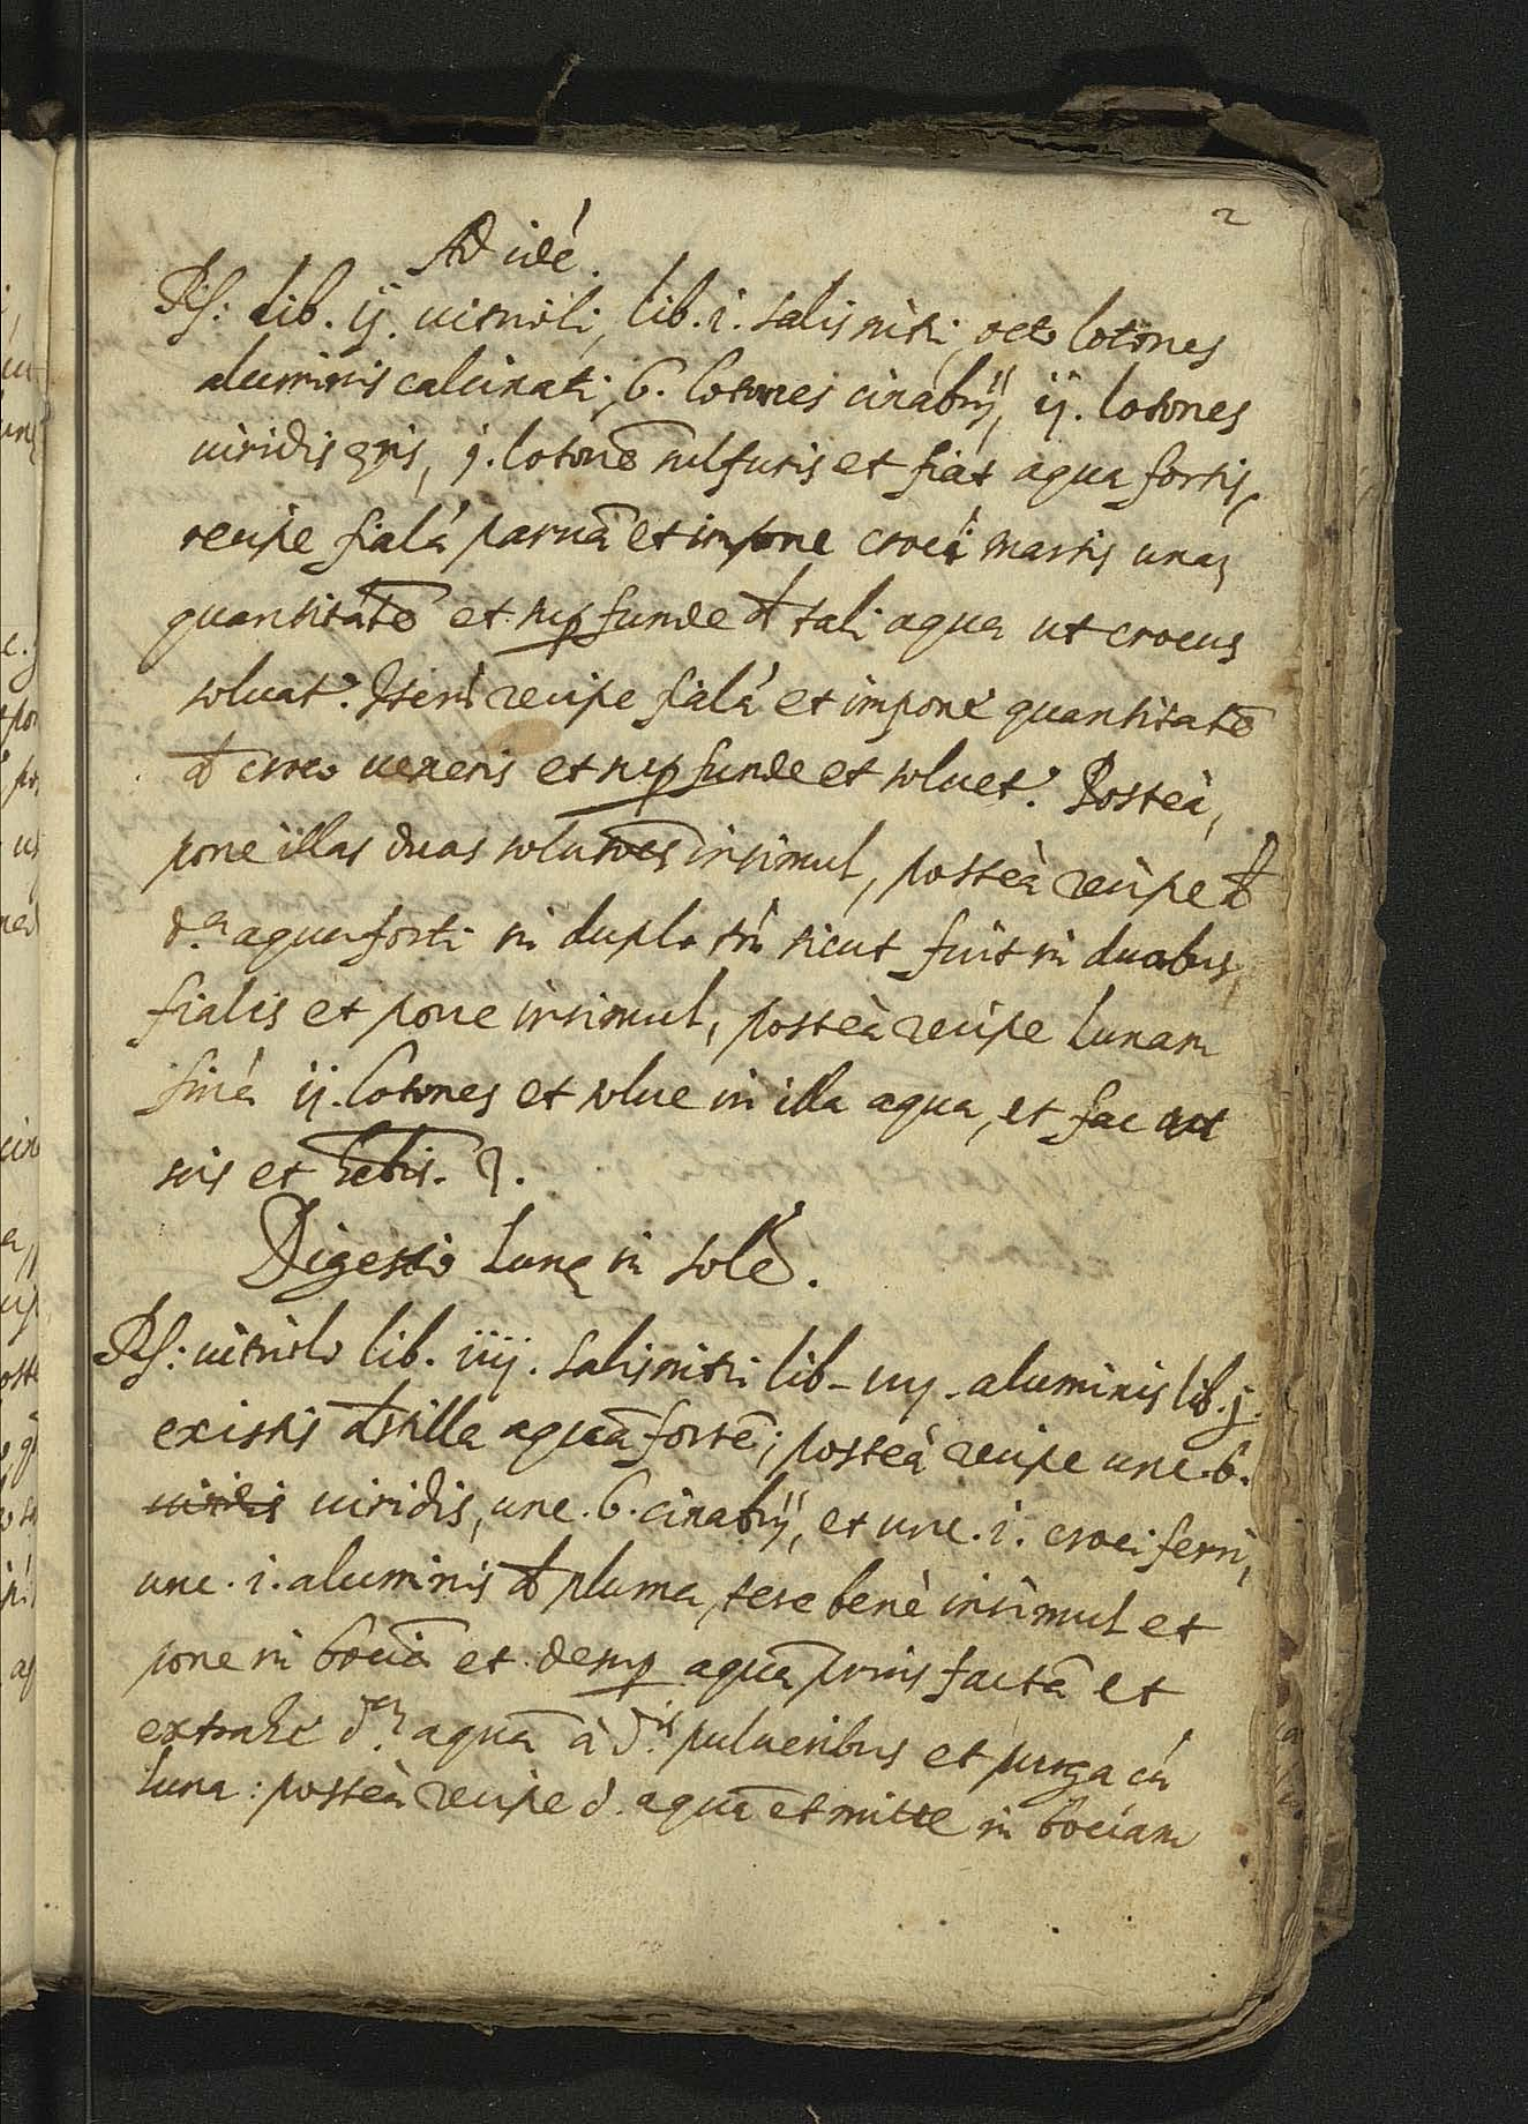 2
Ad idé.
Rs: lib. ij. uitrioli, lib. i. salis nitri, octo lotones
aluminis calcinati, 6. lotones cinabrij, ij. lotones
uiridis eris, j. lotonē sulfuris et fiat aqua fortis,
recipe fialá paruā et impone croci martis unaȝ
quantitatē et sup funde d tali aqua ut crocus
soluat.' Iterú recipe fialá et impone quantitatē
d croco ueneris et sup funde et soluet.' Posteà,
pone illas duas solutiōes insimul, posteà recipe d
d.a aqua forti in duplo tń sicut fuit in duabus,
fialis et pone insimul, posteà recipe Lunam
finá ij. lotones et solue in illa aqua, et fac ut
scis et hēbis.
Digestio Lunę in solē.
Rs: uitriolo lib. iiij. salis nitri lib - iiij. aluminis lib. j.
ex istis dstilla aquā fortē; posteà recipe unc. 6.
uiridis uiridis, unc. 6. cinabrij, et unc. i. croci ferri,
unc. i. aluminis d pluma, tere benè insimul et
pone in bociā et desup aquā prius factā et
extrahe d.am aquā à d.is pulueribus et purga cú
luna: posteà recipe d. aquā et mitte in bociam